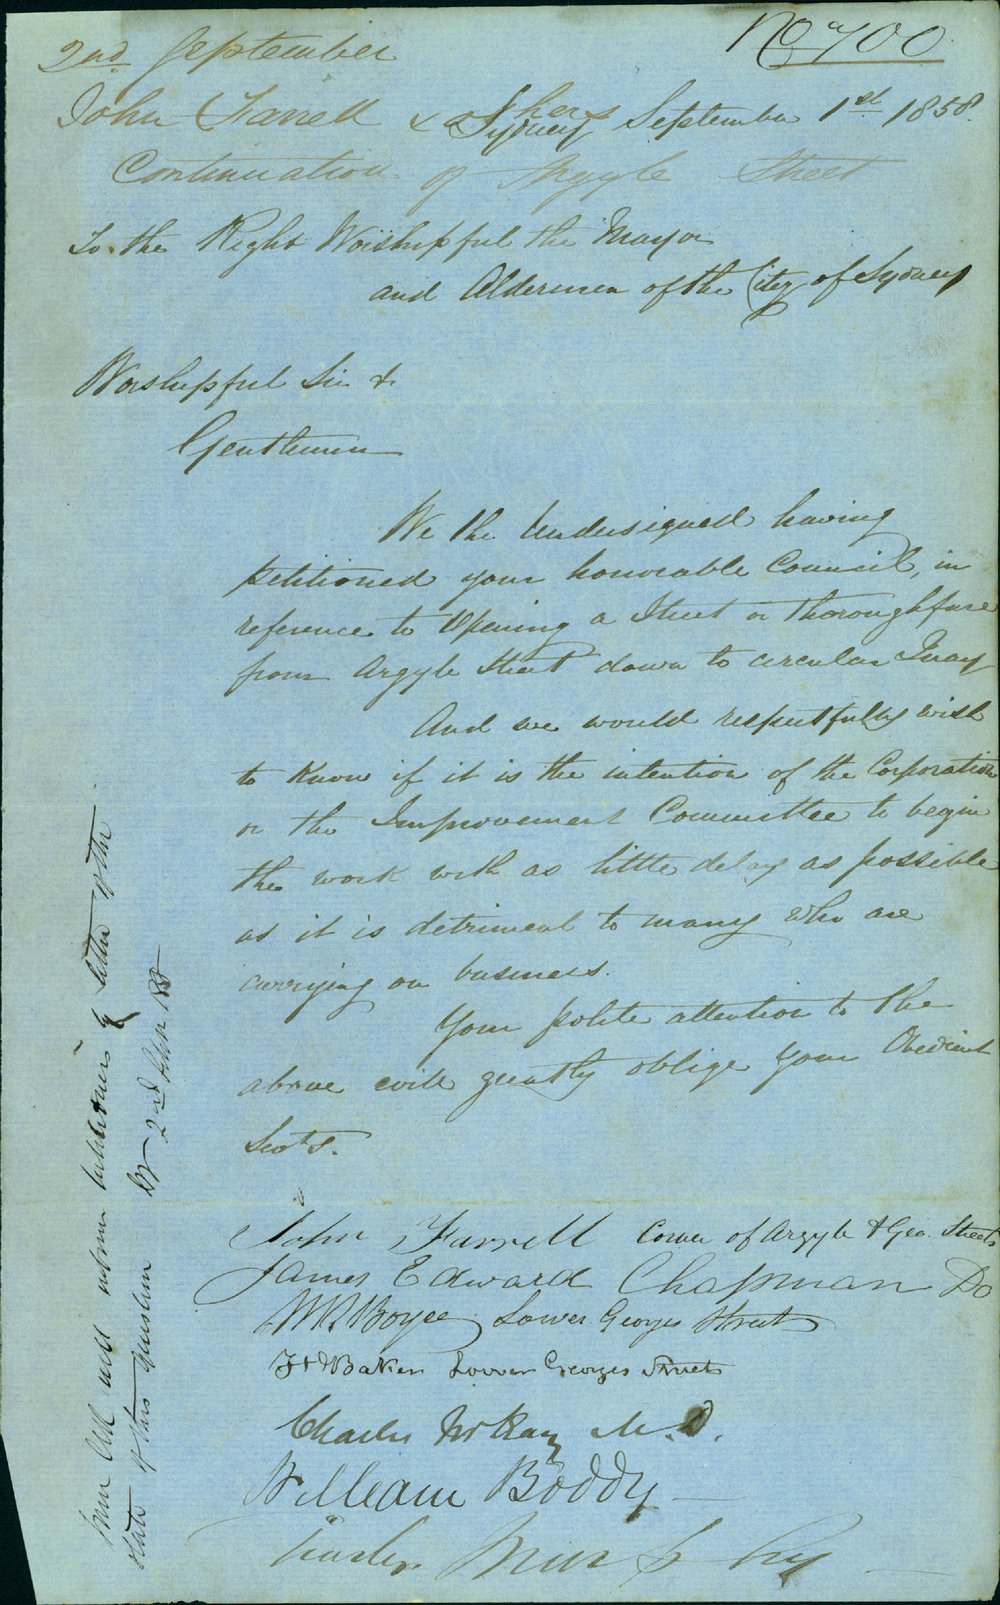 No 700
2nd September
John Farrell & others
Sydney September 1st 1858.
Continuation of Argyle Street
To the Right Worshipful the Mayor
and Aldermen of the City of Sydney
Worshipful Sir &
Gentlemen
We the Undersigned having
petitioned your honorable Council, in
reference to Opening a Street or thoroughfare
from Argyle Street down to circular Quay
And we would respectfully wish
to know if it is the intention of the Corporation
or the Improvement Committee to begin
the work with as little delay as possible
as it is detriment to many who are
carrying on business.
Your polite attention to the
above will greatly oblige your Obedient
Sevts.
John Farrell Corner of Argyle & Geo. Streets
James Edward Chapman Do
WR Boyce Lower George Street
Baker Lower George Street
Charles McKay M.D.
William Boddy
Charles Murphy
Town Clerk will inform petitioners by letter of the
state of this question
2nd Septr 185